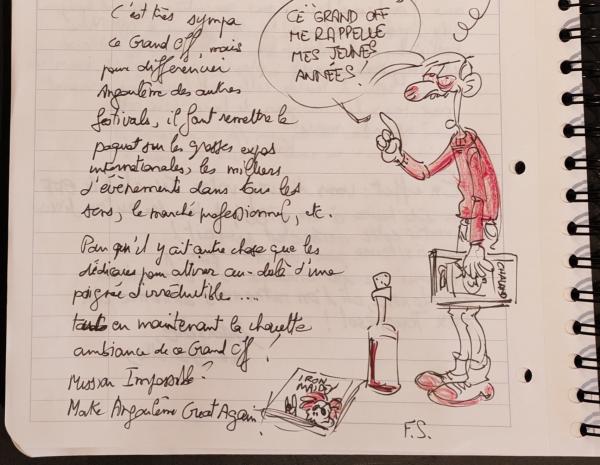 C'est très sympa
ce Grand Off, mais
pour différencier
Angoulême des autres
festivals, il faut remettre le
paquet sur les grosses expos
internationales, les milliers
d'évènements dans tous les
sens, le marché professionnel, etc.
Pour qu'il y ait autre chose que les
dédicaces pour attirer au-delà d'une
poignée d'irréductibles ....
tout en maintenant la chouette
ambiance de ce Grand Off !
Mission Impossible ?
Make Angoulême Great Again !
CE GRAND OFF
ME RAPPELLE
MES JEUNES
ANNÉES !
IRON
MAIDEN
F.S.